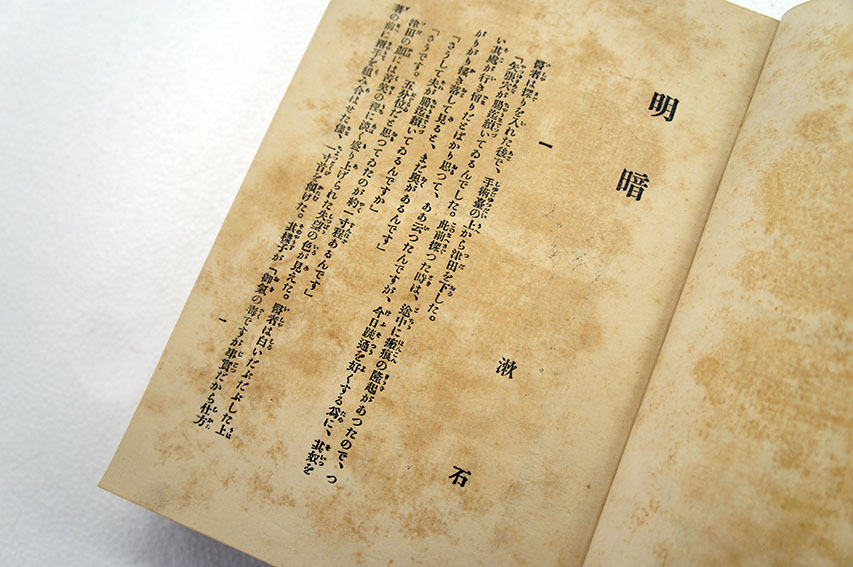 明暗
漱石
一
醫者は探りを入れた後で、手術臺の上から津田を下した。
「矢張穴が腸迄續いてゐるんでした。此前探つた時は、途中に瘢痕の隆起があつたので、つ
い其處が行き留りだとばかり思つて、ああ云つたんですが、今日疎通を好くする爲に、其奴を
がりがり掻き落して見ると、まだ奥があるんです」
「さうして夫が腸迄續いてゐるんですか」
「さうです。五分位だと思つてゐたのが約一寸程あるんです」
津田の顏には苦笑の裡に淡く盛り上げられた失望の色が見えた。醫者は白いだぶだぶした上
著の前に兩手を組み合はせた儘、一寸首を傾けた。其樣子が「御氣の毒ですが事實だから仕方
一